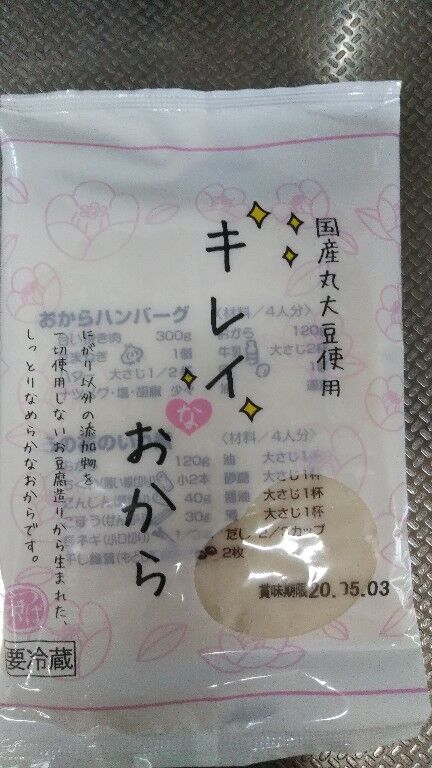 国産丸大豆使用
キレイ
な
おから
にがり以外の添加物を
一切使用しないお豆腐造りから生まれた、
しっとりなめらかなおからです。
おからハンバーグ
〈材料/4人分〉
300g
おから
120g
1個
牛乳
大さじ1/2
〈材料/4人分〉
120g
油
大さじ1杯
小2本
砂糖
大さじ1杯
40g
醤油
大さじ1杯
30g
酒
大さじ1杯
だし
2/3カップ
2枚
賞味期限20.05.03
要冷蔵